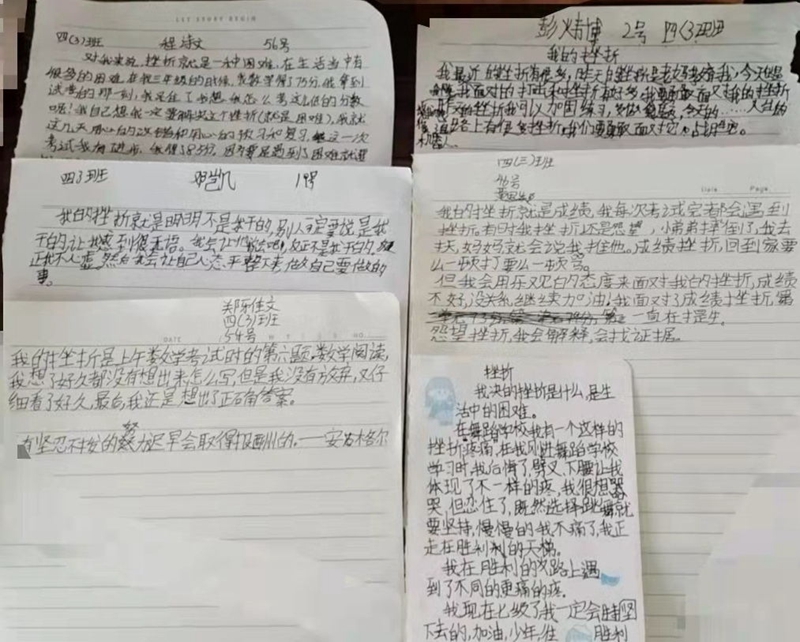 LET STORY BEGIN
四(3)班 程诗文 56号
对我来说,挫折就是一种困难,在生活当中有
很多的困难,在我三年级的时候,我数学得了75分,我拿到
试卷的那一刻,我呆住了,我想我怎么考这么低的分数
呢?我自己想我一定要解决这个挫折(就是困难),我就
这几天用心的改错题和用心的预习和复习,这一次
考试我有进步,我得了85分,因为要是遇到了困难就退
四3班 邓凯凡 1号
我的挫折就是明明不是我干的,别人一定要说是我
干的,让我感到很无语。反正不是我干的,
正我不人虚,然后我会让自己人态平整下来,做自己要做的
事。
关际佳文
四(3)班
54号
DATE
我的挫折是上午数学考试时的第六题,数学阅读,
我想了好久都没有想出来怎么写,但是我没有放弃,又仔
细看了好久,最后,我还是想出了正确答案。
有坚忍不拔的努力迟早会取得报酬的。——安格尔
彭炜博 2号 四(3)班
我的挫折
我最近的挫折有很多,昨天的挫折是老妈教育我,今天的是
昨天的挫折我可以加固练习,
路上有很多挫折,我们要勇敢面对它,战胜它。
四(三)班
46号
Date Page
我的挫折就是成绩,我每次考试完都会遇到
挫折,有时我挫折还是怨望,小弟弟摔倒了,我去
扶,妈妈就会说我推他。成绩挫折,回到家要
么一顿打要么一顿骂。
但我会用乐观的态度来面对我的挫折,成绩
不好,没关系继续加油!我面对了成绩挫折,第
一直在提生。
怨望挫折,我会解释,会找证据。
挫折
我决的挫折是什么,是生
活中的困难。
在舞蹈学校我有一个这样的
挫折疼痛,在我刚进舞蹈学校
学习时我后悔了,劈叉、下腰让我
体现了不一样的疼,我很想哭
哭,但忍住了,既然选择跳舞就
要坚持,慢慢的我不痛了,我正
走在胜利的天梯。
我在胜利的路上遇
到了不同的更痛的疼。
我现在七级了我一定会坚
下去的,加油,少年,往 胜利